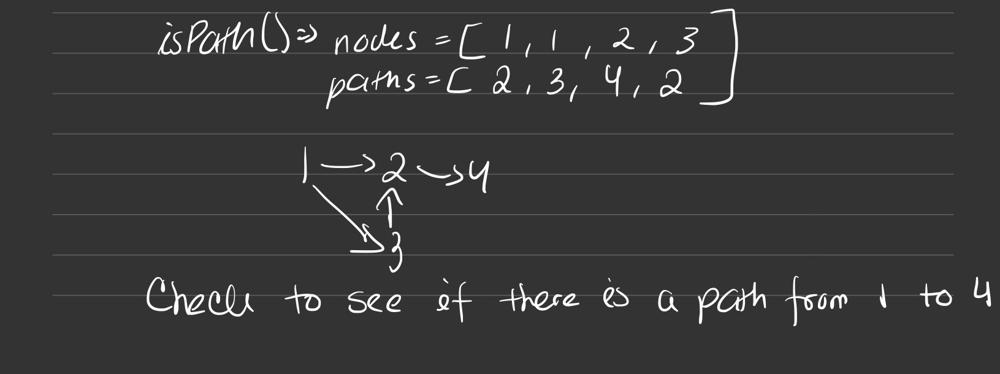 isPath() => nodes = [ 1, 1, 2, 3 ]
paths = [ 2, 3, 4, 2 ]
1 → 2 → 4
3
Check to see if there is a path from 1 to 4